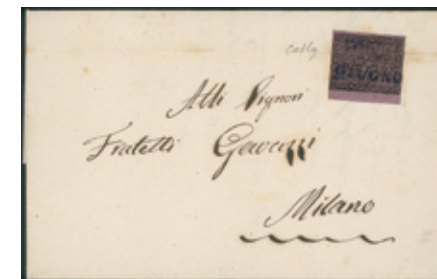 GIUGNO
Alli Signori
Fratelli Gavazzi
Milano